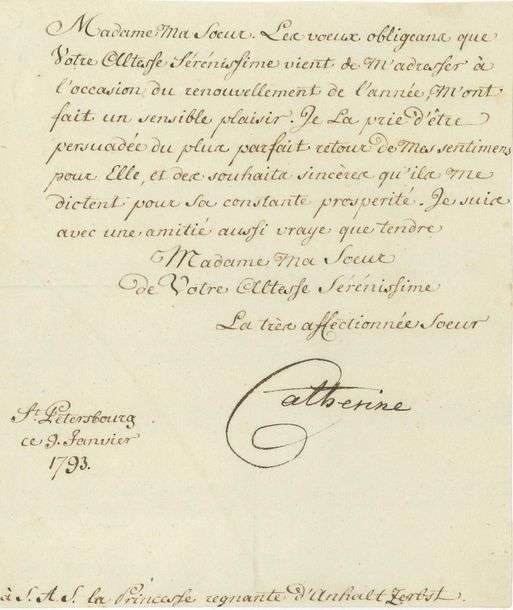 Madame Ma Soeur. Les voeux obligeans que
Votre Altesse Sérénissime vient de M'adresser à
l'occasion du renouvellement de l'année, M'ont
fait un sensible plaisir. Je La prie d'être
persuadée du plus parfait retour de Mes sentimens
pour Elle, et des souhaits sincères qu'ils Me
dictent pour sa constante prosperité. Je suis
avec une amitié aussi vraye que tendre
Madame Ma Soeur
de Votre Altesse Sérénissime
La très affectionnée Soeur
Catherine
St. Petersbourg
ce 9. Janvier
1793.
à S. A S. la Princesse regnante d'Anhalt Zerbst.